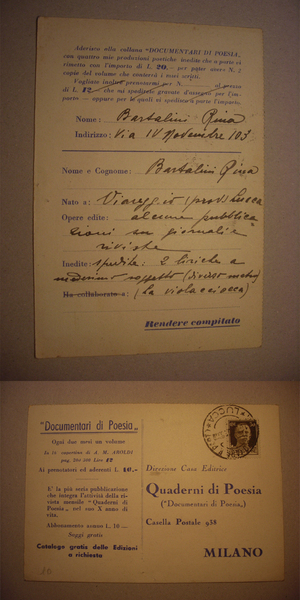 Aderisco alla collana "DOCUMENTARI DI POESIA,
con quattro mie produzioni poetiche inedite che a parte si
rimette con l'importo di L. 20.- per aver N. 2
copie del volume che conterrà i miei scritti.
Vogliate inoltre prenotarmi per N. al prezzo
di L. 12
Nome: Bartalini Rina
Indirizzo: Via IV Novembre 103
Nome e Cognome: Bartalini Rina
Nato a: Viareggio (prov) Lucca
Opere edite: alcune pubblica
zioni su giornali e
riviste
Inedite: spedite: 2 liriche a
soggetto
Ha collaborato a: (La violacciocca)
Rendere compilato
"Documentari di Poesia„
Ogni due mesi un volume
Ai prenotatori ed aderenti L. 10.-
È la più seria pubblicazione
che integra l'attività della ri-
vista mensile "Quaderni di
Poesia„ nel suo X anno di
vita.
Abbonamento annuo L. 10 —
Saggi gratis
Catalogo gratis delle Edizioni
a richiesta
Direzione Casa Editrice
Quaderni di Poesia
("Documentari di Poesia„)
Casella Postale 938
MILANO